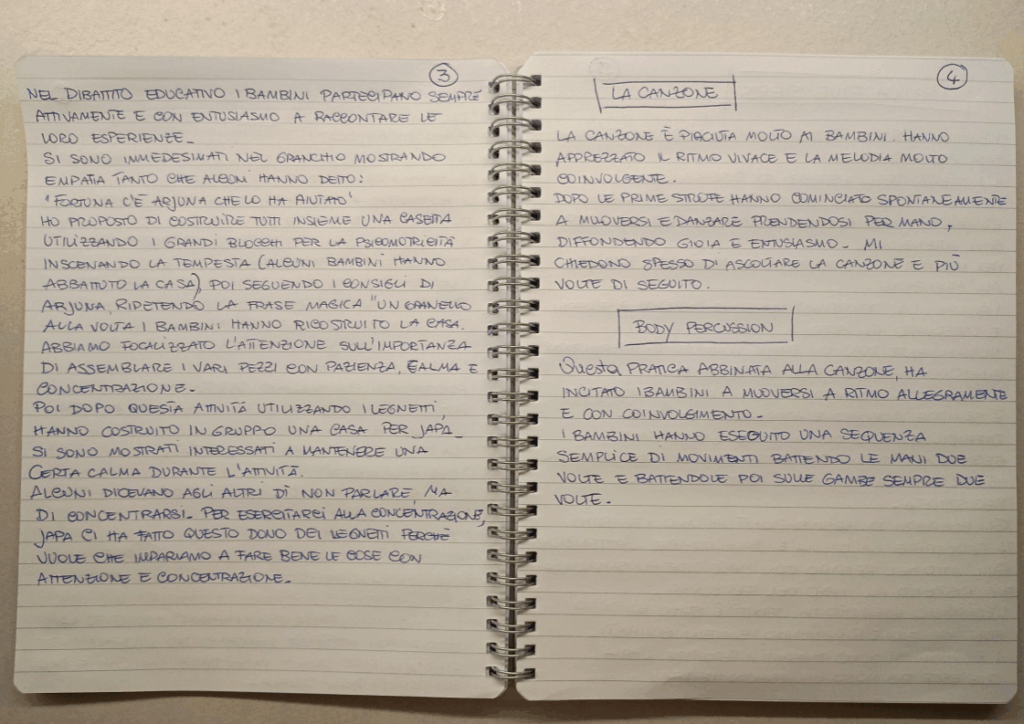 3
NEL DIBATTITO EDUCATIVO I BAMBINI PARTECIPANO SEMPRE
ATTIVAMENTE E CON ENTUSIASMO A RACCONTARE LE
LORO ESPERIENZE.
SI SONO IMMEDESIMATI NEL GRANCHIO MOSTRANDO
EMPATIA TANTO CHE ALCUNI HANNO DETTO:
"FORTUNA C'È ARJUNA CHE LO HA AIUTATO"
HO PROPOSTO DI COSTRUIRE TUTTI INSIEME UNA CASETTA
UTILIZZANDO I GRANDI BLOCCHI PER LA PSICOMOTRICITÀ
INSCENANDO LA TEMPESTA (ALCUNI BAMBINI HANNO
ABBATTUTO LA CASA), POI SEGUENDO I CONSIGLI DI
ARJUNA, RIPETENDO LA FRASE MAGICA "UN GRANELLO
ALLA VOLTA I BAMBINI HANNO RICOSTRUITO LA CASA.
ABBIAMO FOCALIZZATO L'ATTENZIONE SULL'IMPORTANZA
DI ASSEMBLARE I VARI PEZZI CON PAZIENZA, CALMA E
CONCENTRAZIONE.
POI DOPO QUESTA ATTIVITÀ UTILIZZANDO I LEGNETTI,
HANNO COSTRUITO IN GRUPPO UNA CASA PER JAPA.
SI SONO MOSTRATI INTERESSATI A MANTENERE UNA
CERTA CALMA DURANTE L'ATTIVITÀ.
ALCUNI DICEVANO AGLI ALTRI DI NON PARLARE, MA
DI CONCENTRARSI. PER ESERCITARCI ALLA CONCENTRAZIONE,
JAPA CI HA FATTO QUESTO DONO DEI LEGNETTI PERCHÈ
VUOLE CHE IMPARIAMO A FARE BENE LE COSE CON
ATTENZIONE E CONCENTRAZIONE.
4
LA CANZONE
LA CANZONE È PIACIUTA MOLTO AI BAMBINI. HANNO
APPREZZATO IL RITMO VIVACE E LA MELODIA MOLTO
COINVOLGENTE.
DOPO LE PRIME STROFE HANNO COMINCIATO SPONTANEAMENTE
A MUOVERSI E DANZARE PRENDENDOSI PER MANO,
DIFFONDENDO GIOIA E ENTUSIASMO. MI
CHIEDONO SPESSO DI ASCOLTARE LA CANZONE E PIÙ
VOLTE DI SEGUITO.
BODY PERCUSSION
Questa PRATICA ABBINATA ALLA CANZONE, HA
INCITATO I BAMBINI A MUOVERSI A RITMO ALLEGRAMENTE
E CON COINVOLGIMENTO.
I BAMBINI HANNO ESEGUITO UNA SEQUENZA
SEMPLICE DI MOVIMENTI BATTENDO LE MANI DUE
VOLTE E BATTENDOLE POI SULLE GAMBE SEMPRE DUE
VOLTE.